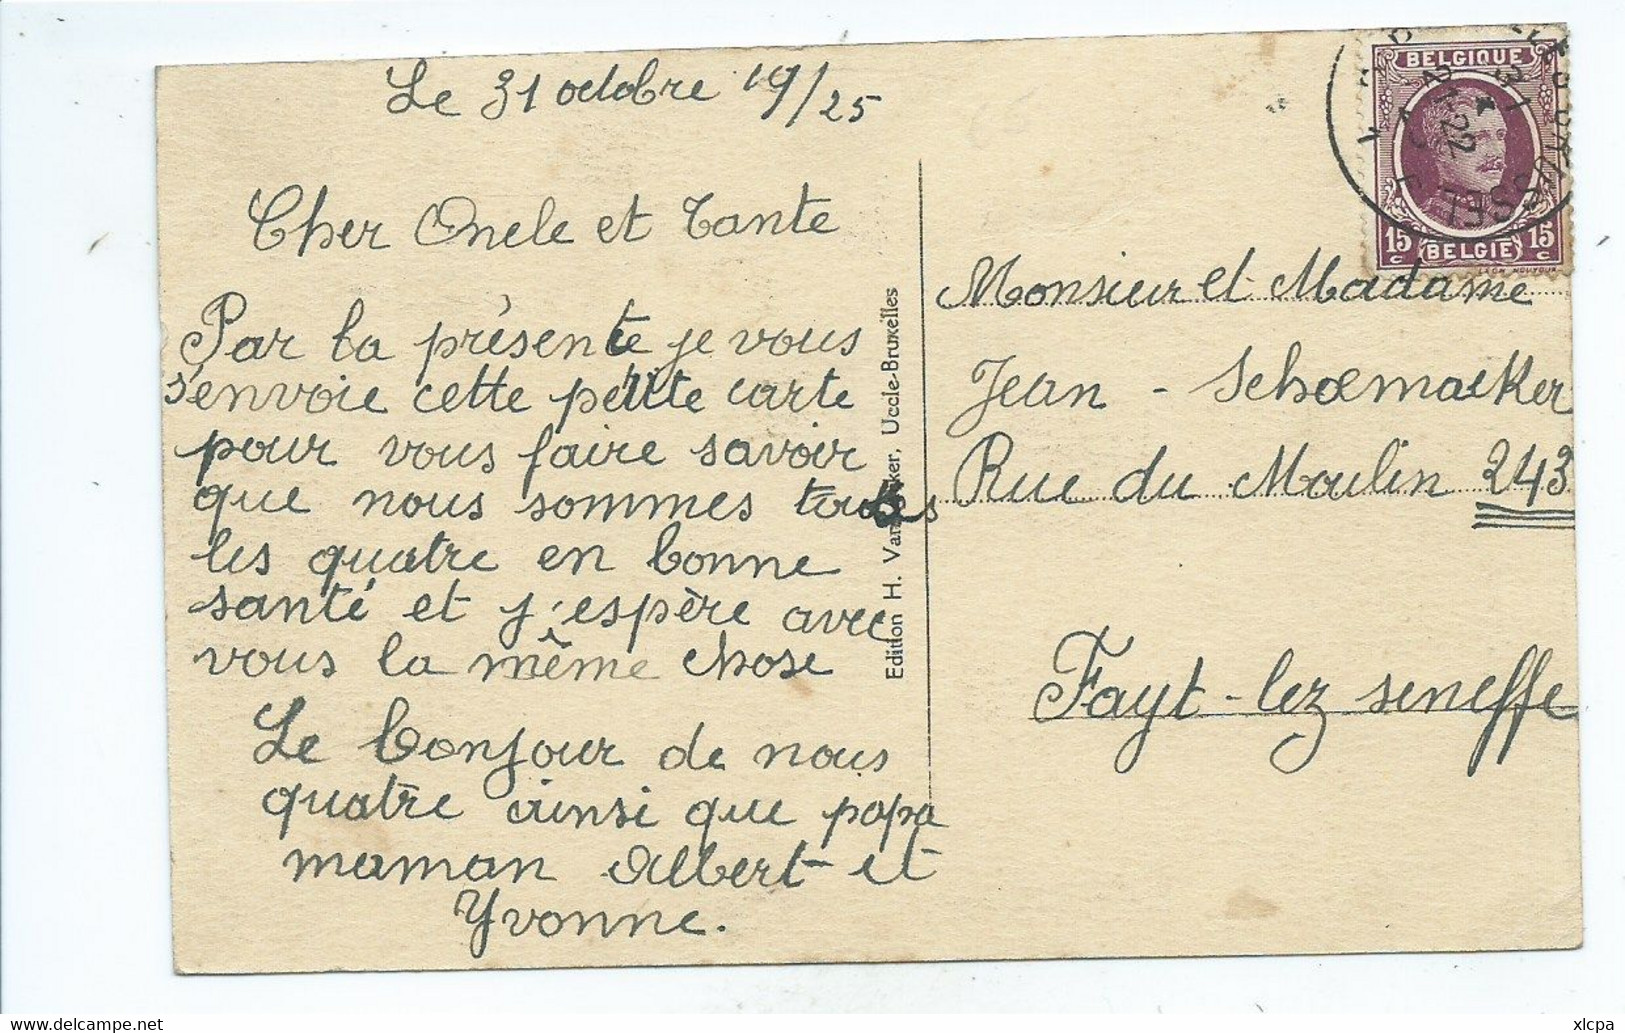 Le 31 octobre 19/25
Cher Oncle et Tante
Par la présente je vous
s'envoie cette petite carte
pour vous faire savoir
que nous sommes tous
les quatre en bonne
santé et j'espère avec
vous la même chose
Le bonjour de nous
quatre ainsi que papa
maman Albert et
Yvonne.
Edition H. Van ker, Uccle-Bruxelles
BELGIQUE
15 c BELGIË 15 c
Monsieur et Madame
Jean - Schoemaeker
Rue du Moulin 243
Fayt-lez seneffe
delcampe.net
xlcpa